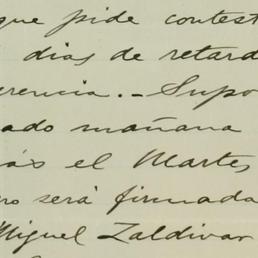 que pide contest
dias de retard
erencia. – Supo
ado mañana
ás el Martes,
ro será firmada
Miguel Zaldivar